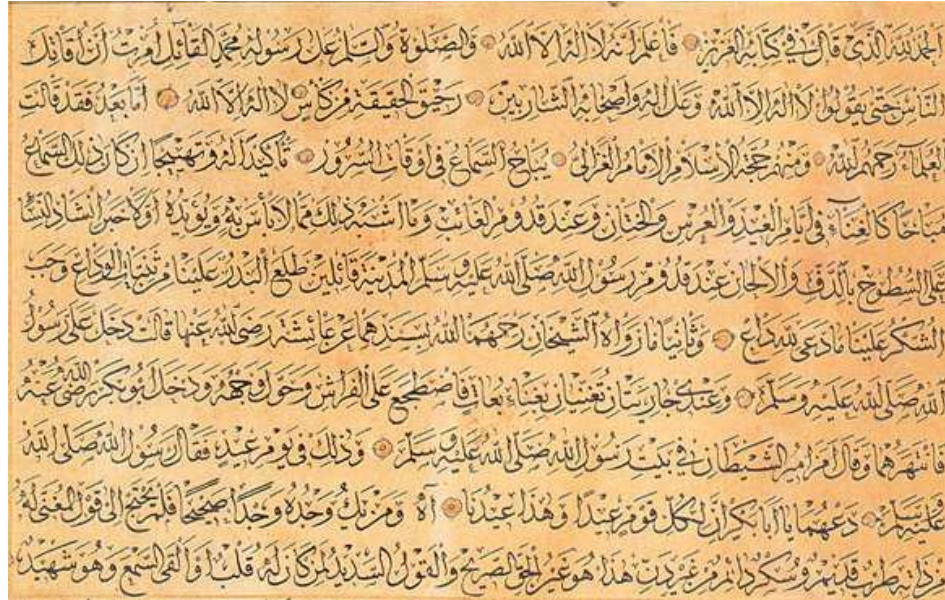 الحمد لله الذي قال في كتابه العزيز فاعلم أنه لا إله إلا الله والصلوة والسلم على رسوله محمد القائل أمرت أن أقاتل
الناس حتى يقولوا لا إله إلا الله وعلى آله وأصحابه الشاربين رحيق الحقيقة من كأس لا إله إلا الله أما بعد فقد قالت
العلماء رحمهم الله ومنهم حجة الإسلام الإمام الغزالي يباح السماع في أوقات السرور تأكيدا له وتهييجا إن كان ذلك السماع
مباحا كالغناء في أيام العيد والعرس والختان وعند قدوم الغائب وما أشبه ذلك مما لا بأس به ويؤيده أولا خبر إنشاد النساء
على السطوح بالدف والألحان عند قدوم رسول الله صلى الله عليه وسلم المدينة قائلين طلع البدر علينا من ثنيات الوداع وجب
الشكر علينا ما دعى لله داع وثانيا ما رواه الشيخان رحمهما الله بسندهما عن عائشة رضي الله عنها قالت دخل علي رسول
الله صلى الله عليه وسلم وعندي جاريتان تغنيان بغناء بعاث فاضطجع على الفراش وحول وجهه ودخل أبو بكر رضي الله عنه
فانتهرهما وقال أمزامير الشيطان في بيت رسول الله صلى الله عليه وسلم وذلك في يوم عيد فقال رسول الله صلى الله
عليه وسلم دعهما يا أبا بكر إن لكل قوم عيدا وهذا عيدنا آه ومن يك وجده وجدا صحيحا فلم يحتج إلى قول المغني له
من ذاته طرب قديم وسكر دائم من غير دن هذا هو عين الحق الصريح والقول السديد لمن كان له قلب أو ألقى السمع وهو شهيد